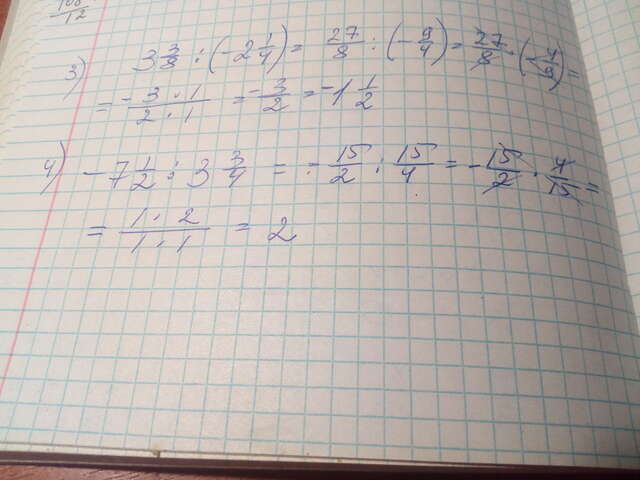 108/12
3) 3 3/8 : (-2 1/4) = 27/8 : (-9/4) = 27/8 · (-4/9) =
= -3·1/2·1 = -3/2 = -1 1/2
4) -7 1/2 : 3 3/4 = -15/2 : 15/4 = -15/2 · 4/15 =
= 1·2/1·1 = 2